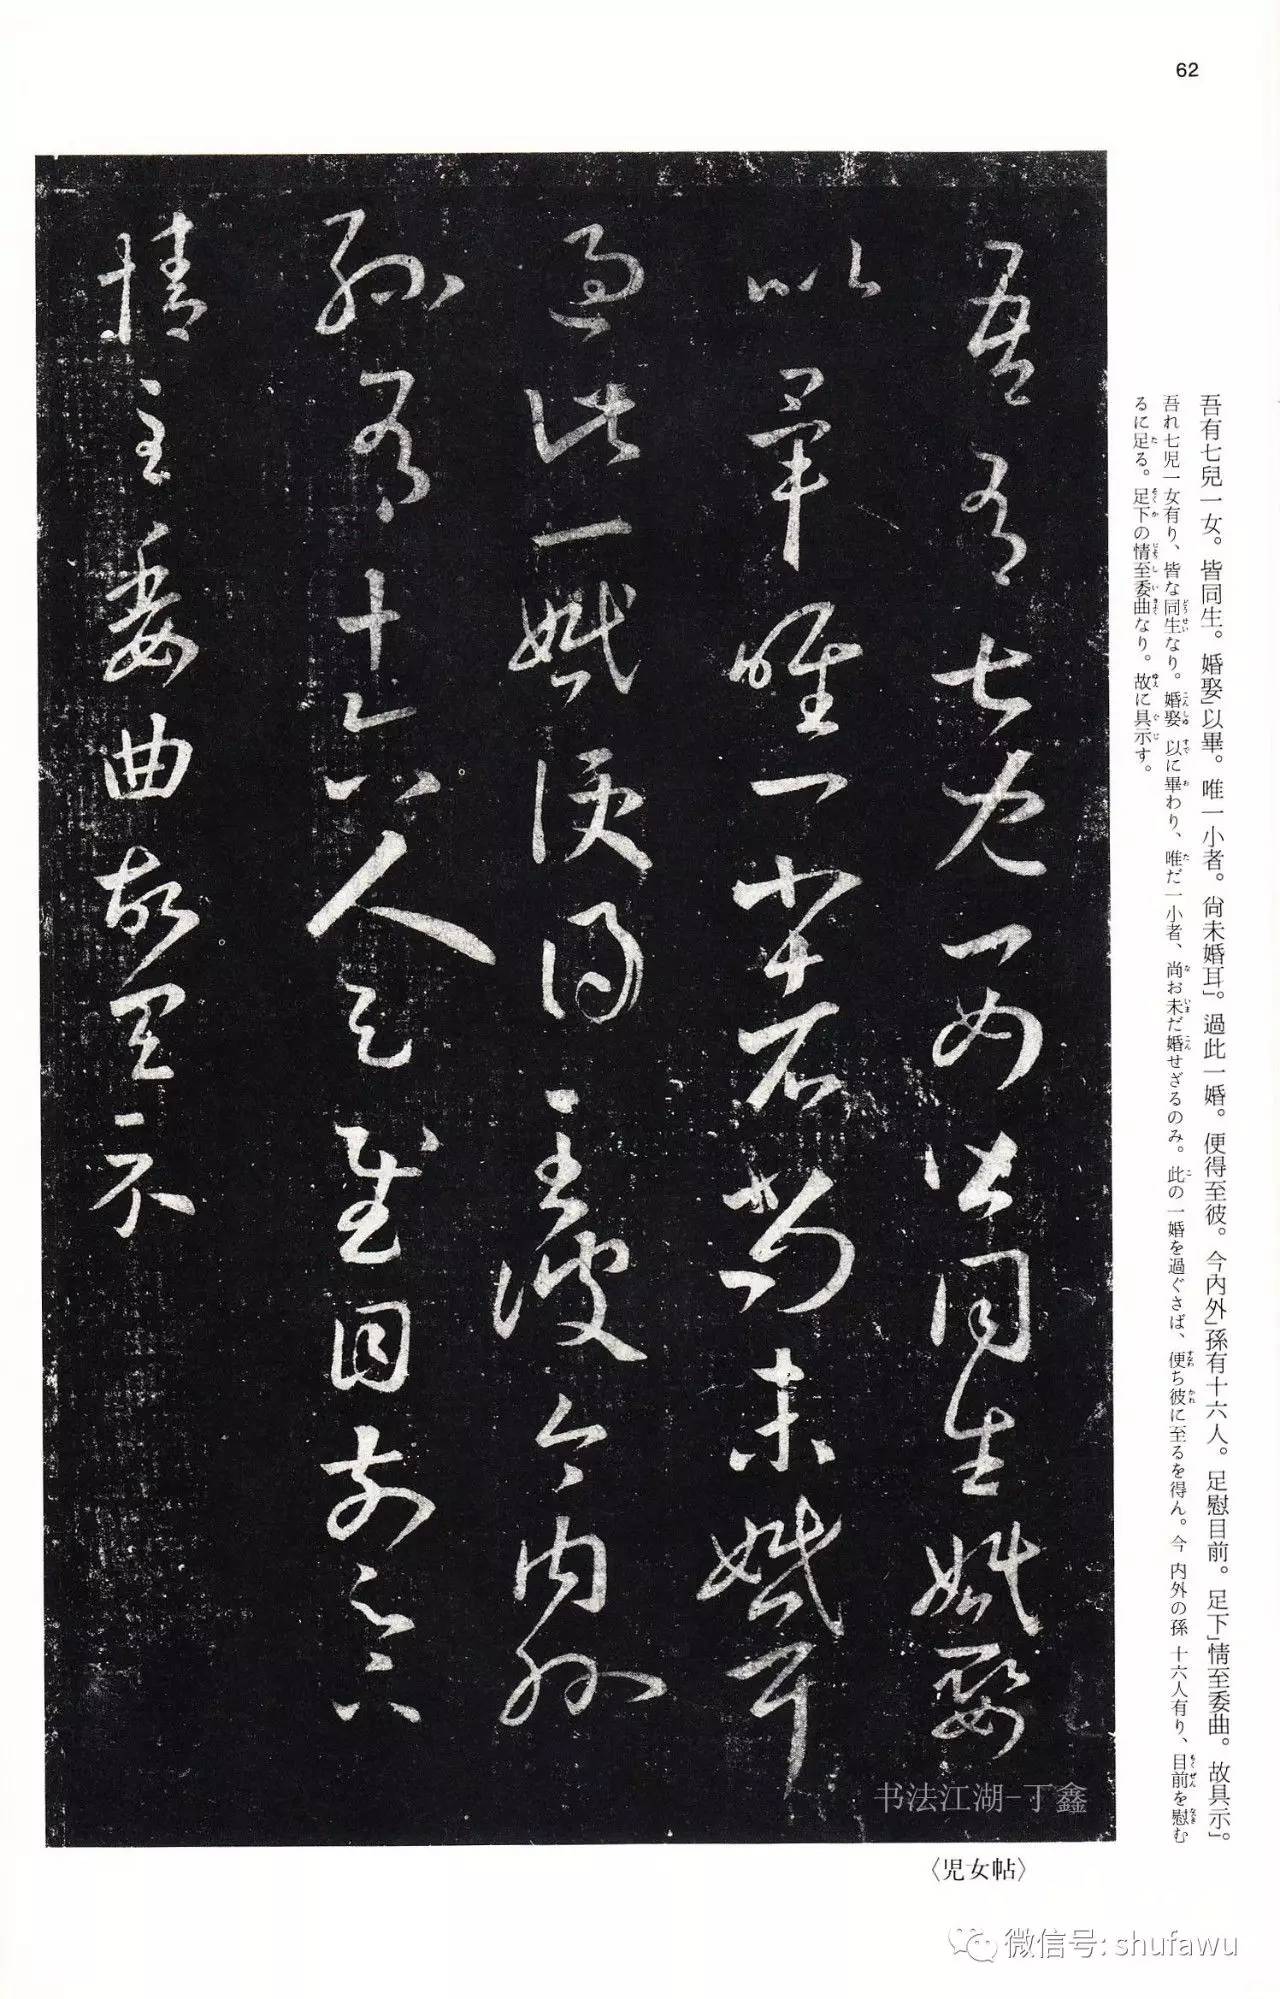 62
吾有七兒一女。皆同生。婚娶」以畢。唯一小者。尚未婚耳」。過此一婚。便得至彼。今内外」孫有十六人。足慰目前。足下」情至委曲。故具示」。
吾れ七児一女有り、皆な同生なり。婚娶 以に畢わり、唯だ一小者、尚お未だ婚せざるのみ。此の一婚を過ぐさば、便ち彼に至るを得ん。今 内外の孫 十六人有り、目前を慰む
るに足る。足下の情至委曲なり。故に具示す。
吾有七兒一女皆同生婚娶
以畢唯一小者尚未婚耳
過此一婚便得至彼今内外
孫有十六人足慰目前足下
情至委曲故具示
书法江湖-丁鑫
〈児女帖〉
微信号: shufawu